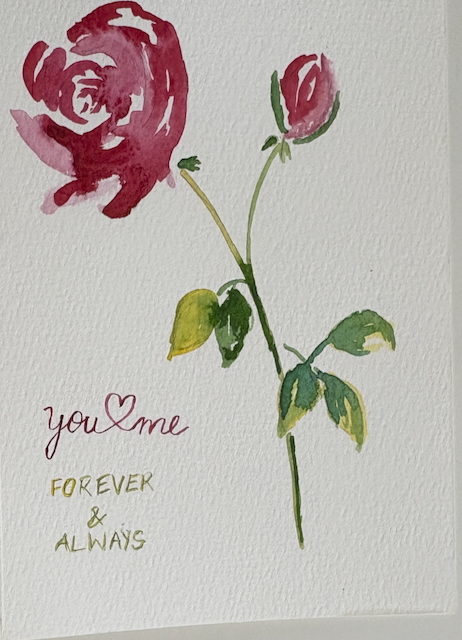 you♡me
FOREVER
&
ALWAYS